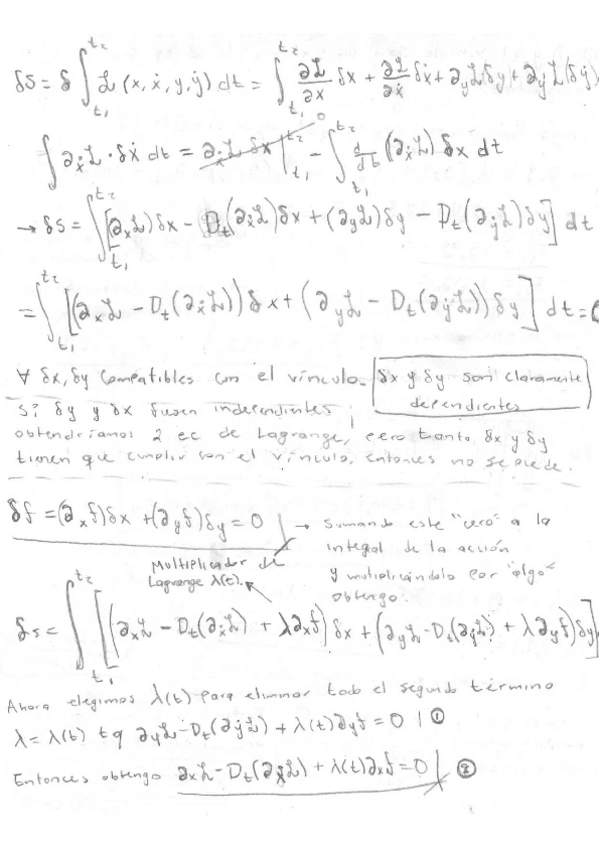 δS = δ ∫_{t₁}^{t₂} ℒ(x, ẋ, y, ẏ) dt = ∫_{t₁}^{t₂} ∂ℒ/∂x δx + ∂ℒ/∂ẋ δẋ + ∂_yℒ δy + ∂_ẏℒ(δẏ)
∫_{t₁}^{t₂} ∂_ẋℒ · δẋ dt = ∂_ẋℒ δx |_{t₁}^{t₂} 0 - ∫_{t₁}^{t₂} d/dt (∂_ẋℒ) δx dt
→ δS = ∫_{t₁}^{t₂} [(∂_xℒ)δx - D_t(∂_ẋℒ)δx + (∂_yℒ)δy - D_t(∂_ẏℒ)δy] dt
= ∫_{t₁}^{t₂} [(∂_xℒ - D_t(∂_ẋℒ))δx + (∂_yℒ - D_t(∂_ẏℒ))δy] dt = 0
∀ δx, δy compatibles con el vínculo. δx y δy son claramente
dependientes
Si δy y δx fuesen independientes
obtendríamos 2 ec de Lagrange, pero tanto δx y δy
tienen que cumplir con el vínculo, entonces no se puede.
δf = (∂_xf)δx + (∂_yf)δy = 0 | → Sumando este "cero" a la
integral de la acción
y multiplicándolo por "algo"
obtengo.
Multiplicador de
Lagrange λ(t).
δs = ∫_{t₁}^{t₂} [(∂_xℒ - D_t(∂_ẋℒ) + λ∂_xf)δx + (∂_yℒ - D_t(∂_ẏℒ) + λ∂_yf)δy]
Ahora elegimos λ(t) para eliminar todo el segundo término
λ = λ(t) tq ∂_yℒ - D_t(∂_ẏℒ) + λ(t)∂_yf = 0 | ①
Entonces obtengo ∂_xℒ - D_t(∂_ẋℒ) + λ(t)∂_xf = 0 | ②